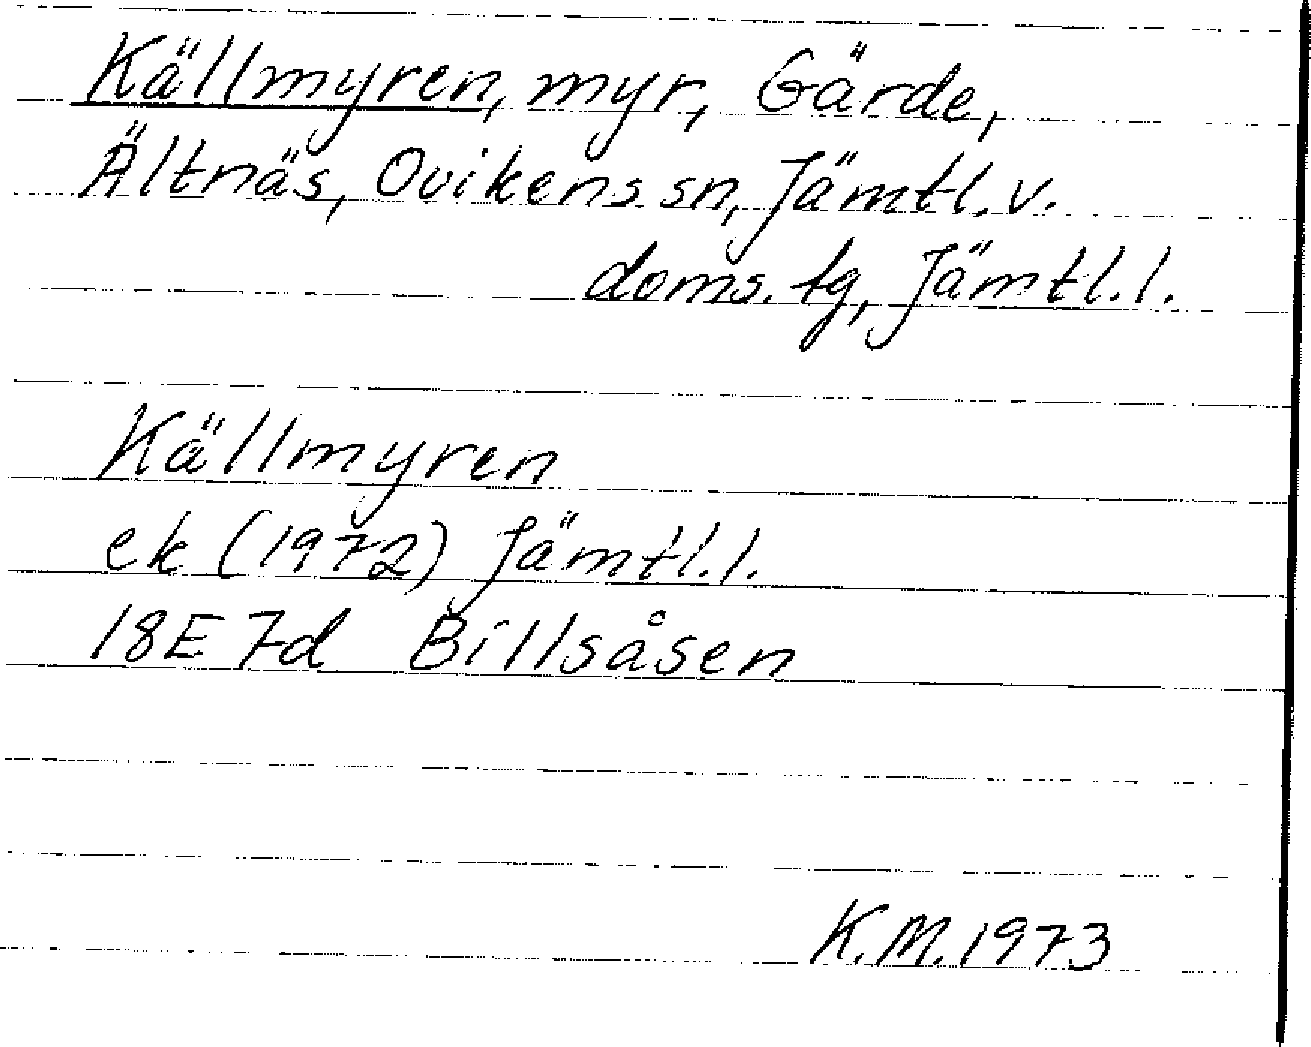 Källmyren, myr, Gärde,
Ältnäs, Ovikens sn, Jämtl. v.
doms. tg, Jämtl. l.
Källmyren
ek (1972) Jämtl. l.
18E 7d Billsåsen
K.M. 1973